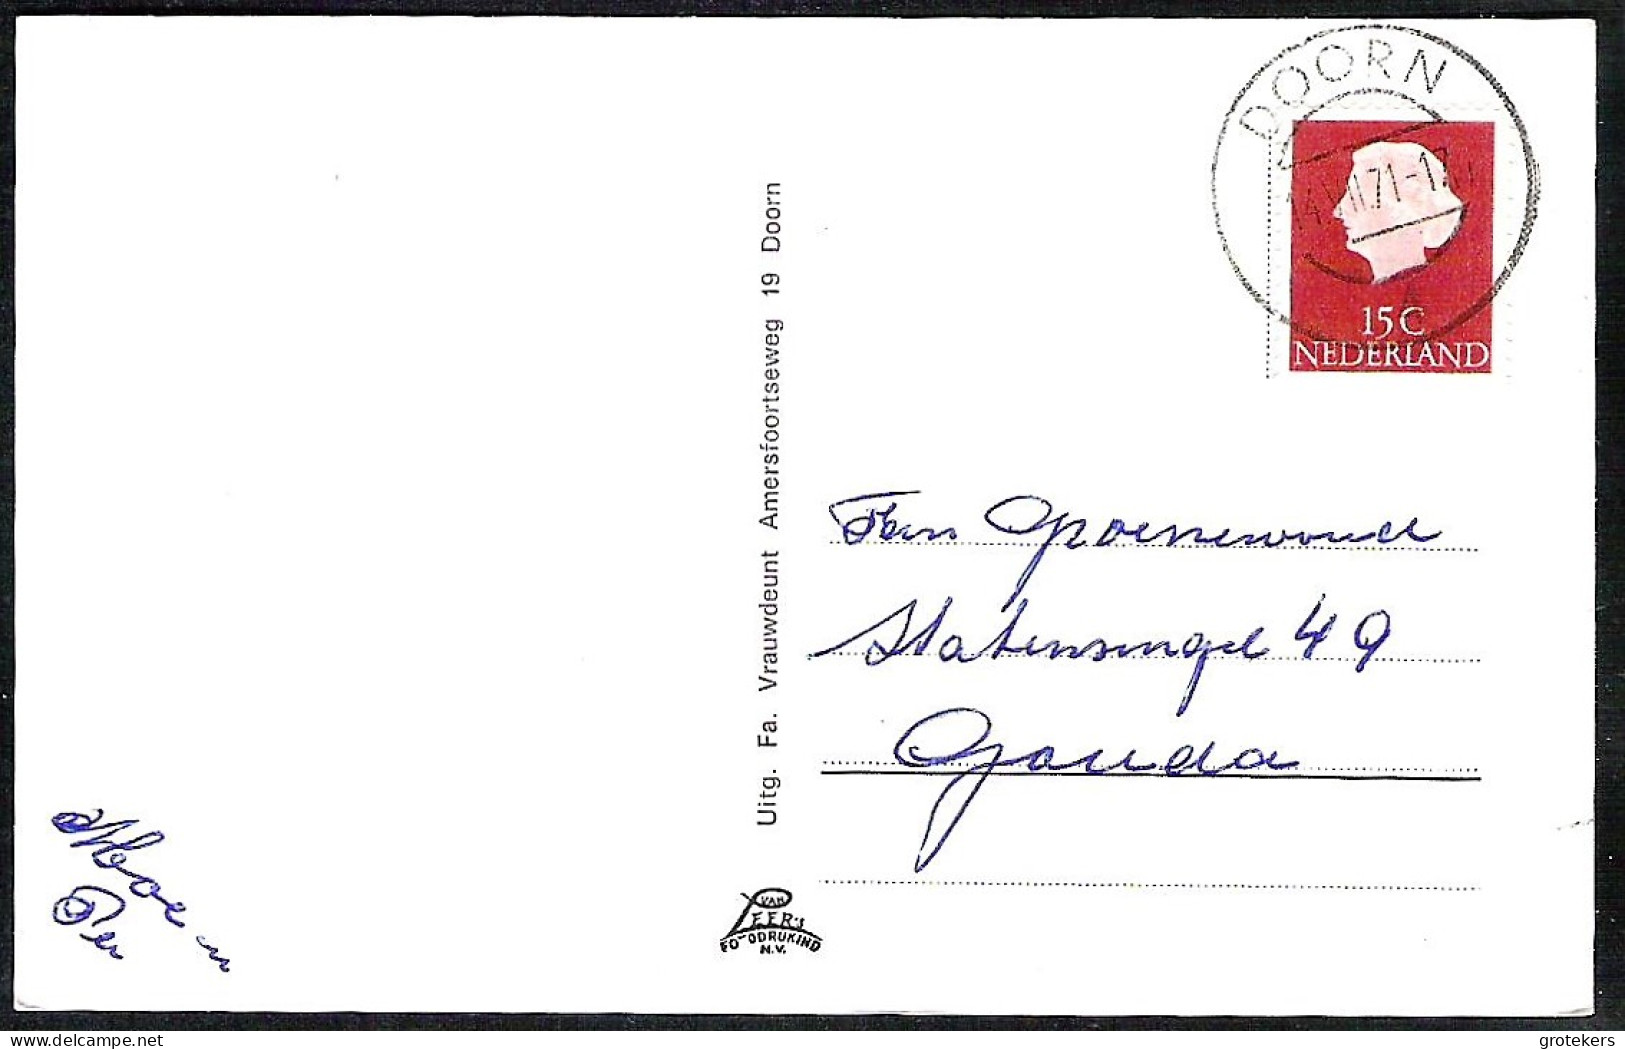 DOORN
14.VII.71-17
15 C
NEDERLAND
Uitg. Fa. Vrauwdeunt Amersfoortseweg 19 Doorn
Fam Groenewoud
Statensingel 49
Gouda
VAN
LEER'S
FOTODRUKIND
N.V.
delcampe.net
grotekers